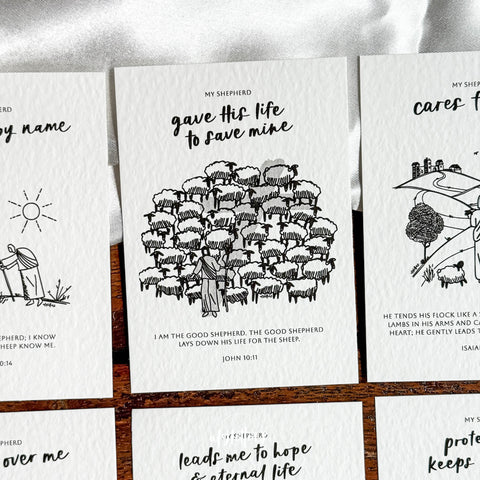 ERD
by name
PHERD; I KNOW
HEEP KNOW ME.
0:14
MY SHEPHERD
gave His life
to save mine
I AM THE GOOD SHEPHERD. THE GOOD SHEPHERD
LAYS DOWN HIS LIFE FOR THE SHEEP.
JOHN 10:11
MY SHEP
cares f
HE TENDS HIS FLOCK LIKE A
LAMBS IN HIS ARMS AND CA
HEART; HE GENTLY LEADS T
ISAIA
ERD
over me
MY SHEPHERD
leads me to hope
& eternal life
MY SHE
prote
keeps